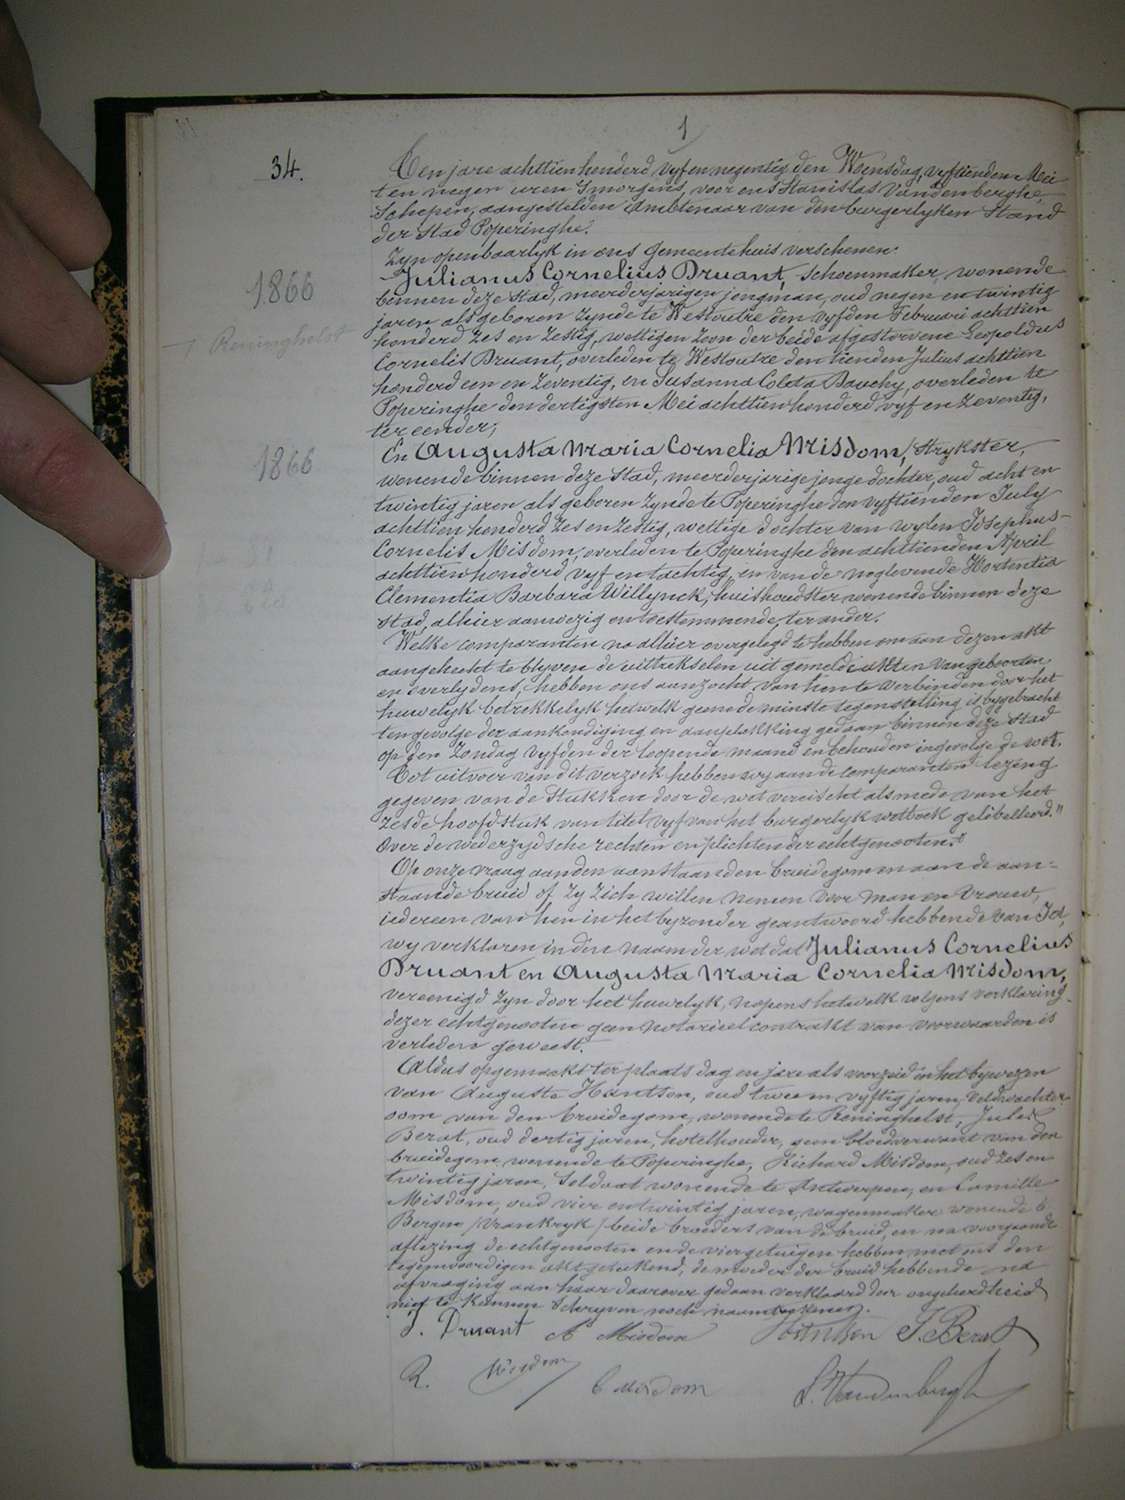 1
34.
Ten jare achttien honderd vyf en negentig den Wensdag, vyftienden Mei
ten negen uren 's morgens, voor ons Stanislas Vandenberghe,
Schepen, aangestelden Ambtenaar van den burgerlyken Stand
der stad Poperinghe.
Zyn openbaarlyk in ons Gemeentehuis verschenen:
Julianus Cornelius Druant, schoenmaker, wonende
1866
binnen deze stad, meerderjarigen jongman, oud negen en twintig
jaren als geboren zynde te Westoutre den vyfden Februari achttien
† Reninghelst
honderd zes en zestig, wettigen zoon der beide afgestorvene Leopoldus
Cornelis Druant, overleden te Westoutre den tienden Julius achttien
honderd een en zeventig, en Susanna Coleta Bauchy, overleden te
Poperinghe den dertigsten Mei achttien honderd vyf en zeventig,
ter eender;
En Augusta Maria Cornelia Misdom, Strykster,
1866
wonende binnen deze stad, meerderjarige jonge dochter, oud acht en
twintig jaren als geboren zynde te Poperinghe den vyftienden July
achttien honderd zes en zestig, wettige dochter van wylen Josephus
Cornelis Misdom, overleden te Poperinghe den achttienden April
achttien honderd vyf en tachtig, en van de noglevende Hortentia
Clementia Barbara Willynck, huishoudster wonende binnen deze
stad, alhier aanwezig en toestemmende, ter ander.
Welke comparanten na alhier overgelegd te hebben om aan dezen akt
aangehecht te blyven de uittrekselen uit gemelde akten van geboorten
en overlydens, hebben ons aanzocht van hen te verbinden door het
huwelyk betrekkelyk hetwelk geene de minste tegenstelling is bygebracht
ten gevolge der aankondiging en aanplakking gedaan binnen deze stad
op den Zondag vyfden der loopende maand in behouden ingevolge de wet.
Tot uitvoer van dit verzoek hebben wy aan de comparanten lezing
gegeven van de stukken door de wet vereischt alsmede van het
zesde hoofdstuk van titel vyf van het burgerlyk wetboek gelibelleerd "
Over de wederzydsche rechten en plichten der echtgenooten."
Op onze vraag aan den aanstaanden bruidegom en aan de aan-
staande bruid of zy zich willen nemen voor man en vrouw,
iedereen van hen in het byzonder geantwoord hebbende van Ja,
wy verklaren in den naam der wet dat Julianus Cornelius
Druant en Augusta Maria Cornelia Misdom,
vereenigd zyn door het huwelyk, nopens hetwelk volgens verklaring
dezer echtgenooten geen notarieel contrakt van voorwaarden is
verleden geweest.
Aldus opgemaakt ter plaats dag en jare als voorzeid in het bywezen
van Auguste Hantson, oud twee en vyftig jaren, veldwachter
oom van den bruidegom, wonende te Reninghelst, Jules
Berat, oud dertig jaren, hotelhouder, geen bloedverwant van den
bruidegom, wonende te Poperinghe, Richard Misdom, oud zes en
twintig jaren, soldaat wonende te Antwerpen, en Camille
Misdom, oud vier en twintig jaren, wagenmaker wonende te
Bergen /Vrankryk/ beide broeders van de bruid, en na voorgaande
aflezing de echtgenooten en de vier getuigen hebben met ons den
tegenwoordigen akt geteekend, de moeder der bruid hebbende na
afvraging aan haar daarover gedaan verklaard door ongeleerdheid
niet te kunnen schryven noch naamteekenen.
J. Druant A Misdom Hantson J. Berat
R. Misdom C Misdom S. Vandenberghe